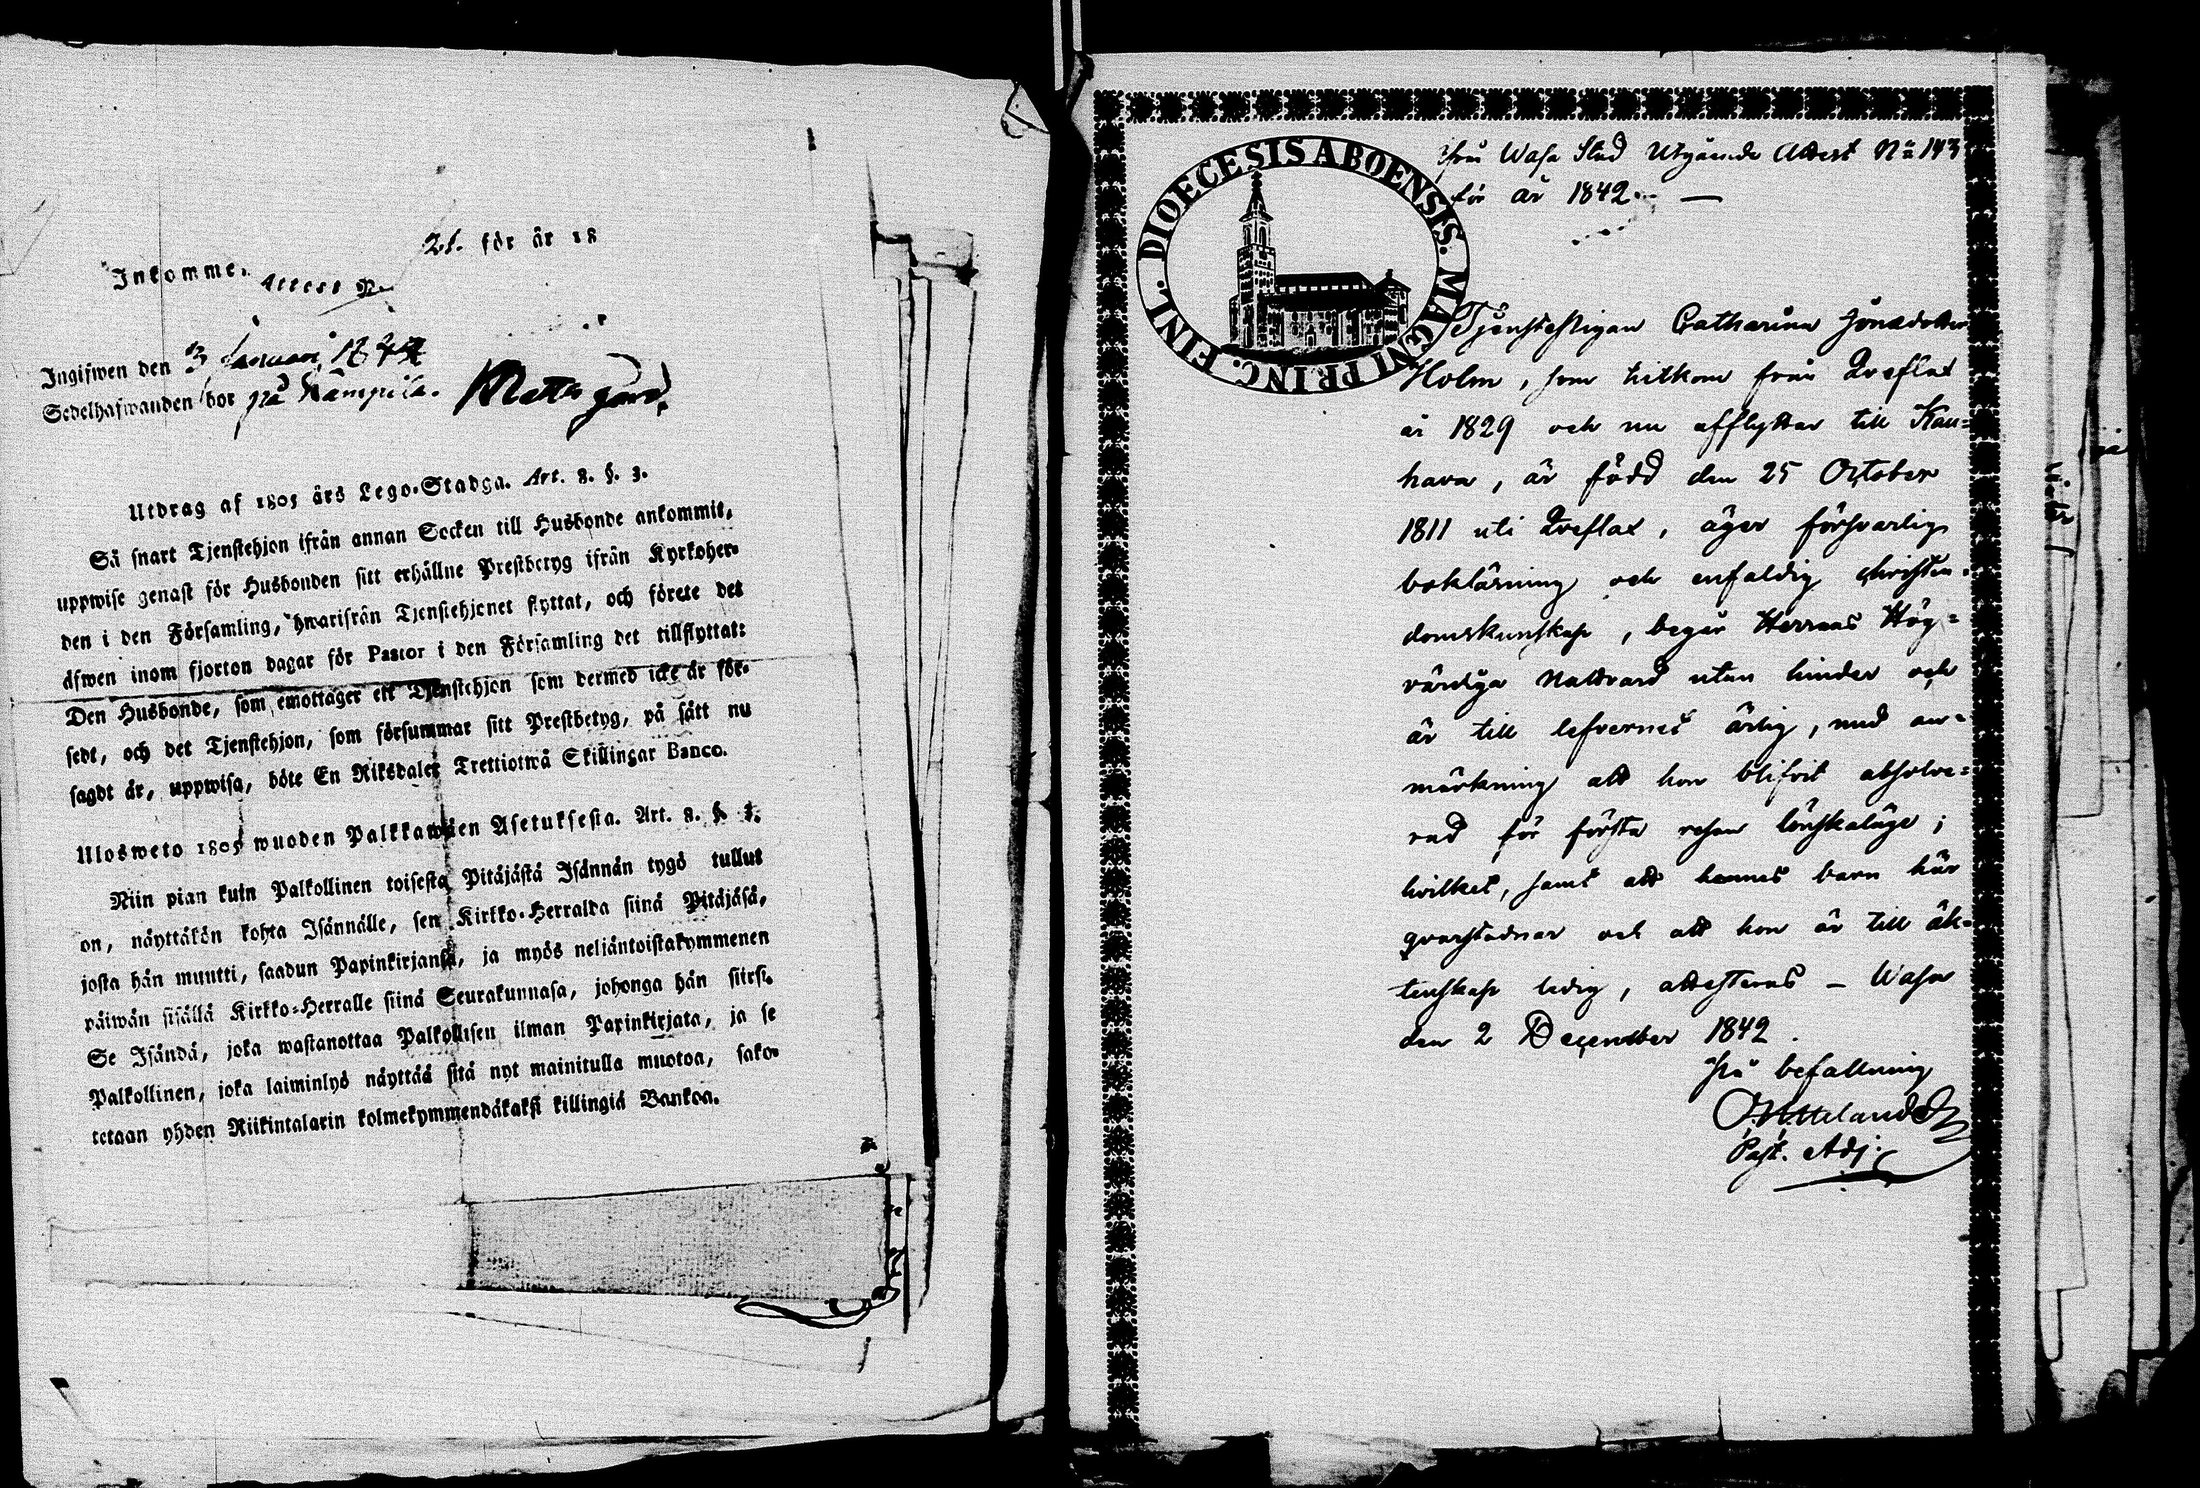 21. för år 18
Inkomme. Attest N.
Ingifwen den 3 Januari 1842
Sedelhafwanden bor på Kämpilä. Matts gård.
Utdrag af 1805 års Lego-Stadga. Art. 8. §. 3.
Så snart Tjenstehjon ifrån annan Socken till Husbonde ankommit,
uppwise genast för Husbonden sitt erhållne Prestbetyg ifrån Kyrkoher-
den i den Församling, hwarifrån Tjenstehjonet flyttat, och förete det
äfwen inom fjorton dagar för Pastor i den Församling det tillflyttat:
Den Husbonde, som emottager ett Tjenstehjon som dermed icke är för-
sedt, och det Tjenstehjon, som försummar sitt Prestbetyg, på sätt nu
sagdt är, uppwisa, böte En Riksdaler Trettiotwå Skillingar Banco.
Ulosweto 1805 wuoden Palkkawäen Asetuksesta. Art. 8. §. 3.
Niin pian kuin Palkollinen toisesta Pitäjästä Isännän tygö tullut
on, näyttäkön kohta Isännälle, sen Kirkko-Herralda siinä Pitäjäsä,
josta hän muutti, saadun Papinkirjansa, ja myös neljäntoistakymmenen
päiwän sisällä Kirkko-Herralle siinä Seurakunnasa, johonga hän siirsi.
Se Isändä, joka wastanottaa Palkollisen ilman Papinkirjata, ja se
Palkollinen, joka laiminlyö näyttää sitä nyt mainitulla muotoa, sako-
tetaan yhden Riikintalarin kolmekymmendäkaksi killingiä Bankoa.
DIOECESIS ABOENSIS. MAGNI PRINC. FINL.
från Wasa Stad Utgående Attest No 143
för år 1842. —
Tjensteflickan Catharina Jonsdotter
Holm, som hitkom från Qveflax
år 1829 och nu afflyttar till Kau=
hava, är född den 25 October
1811 uti Qveflax, äger försvarlig
boklärning och enfaldig christen-
domskunskap, begår Herrans Hög=
värdiga Nattvard utan hinder och
är till lefvernet ärlig, med an=
märkning att hon blifvit absolve=
rad för första resan lönskaläge;
hvilket, samt att hennes barn här
qvarstadnar och att hon är till äk=
tenskap ledig, attesteras – Wasa
den 2 December 1842.
På befallning
Past. Adj.